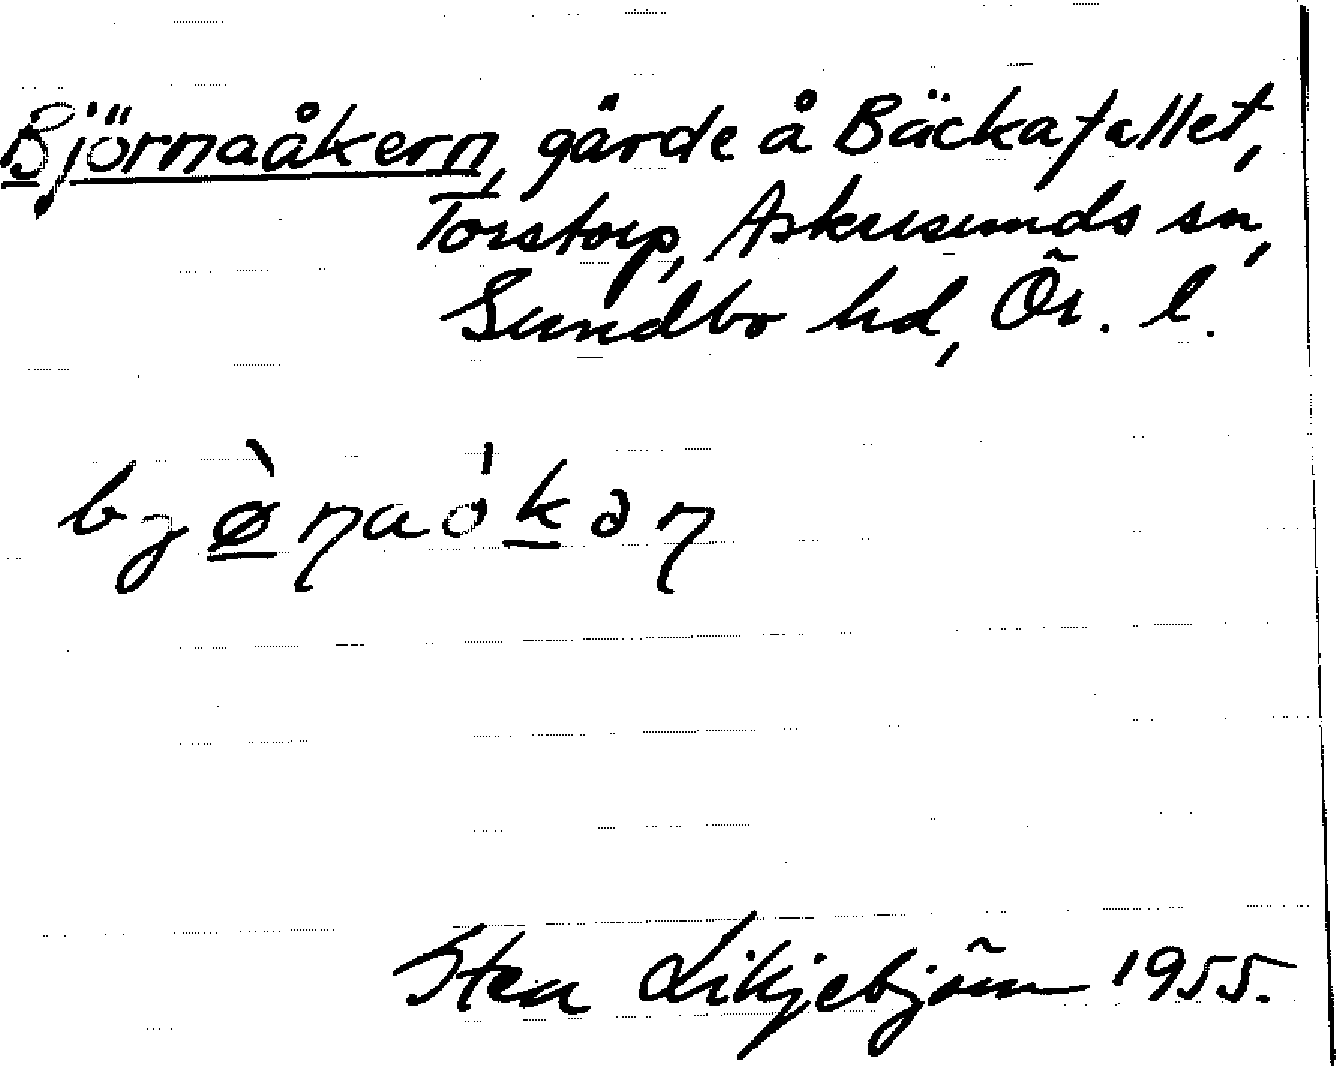 Björnaåkern, gärde å Bäckafallet,
Torstorp, Askersunds sn,
Sundbo hd, Ör. l.
bjø̀ṇaókəṇ
Sten Liljebjörn 1955.